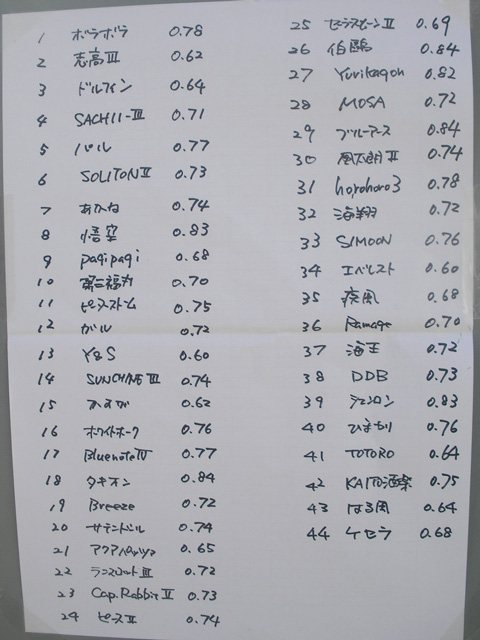 1 ボラボラ 0.78
2 志高III 0.62
3 ドルフィン 0.64
4 SACHII-III 0.71
5 パル 0.77
6 SOLITON II 0.73
7 あかね 0.74
8 悟空 0.83
9 pagipagi 0.68
10 第二福力 0.70
11 0.75
12 ガル 0.72
13 Y&S 0.60
14 SUNCHINE III 0.74
15 かすが 0.62
16 ホワイトホーク 0.76
17 Bluenote IV 0.77
18 タキオン 0.84
19 Breeze 0.72
20 サテンドール 0.74
21 0.65
22 ランスロットIII 0.72
23 Cap.Rabbit II 0.73
24 ピースII 0.74
25 0.69
26 0.84
27 Yurikagoh 0.82
28 MOSA 0.72
29 ブルーアース 0.84
30 風太郎II 0.74
31 horohoro3 0.78
32 海翔 0.72
33 SIMOON 0.76
34 エベレスト 0.60
35 疾風 0.68
36 Ramage 0.70
37 海王 0.72
38 DDB 0.73
39 シェンロン 0.83
40 ひまわり 0.76
41 TOTORO 0.64
42 KAITO 0.75
43 はる風 0.64
44 ケセラ 0.68